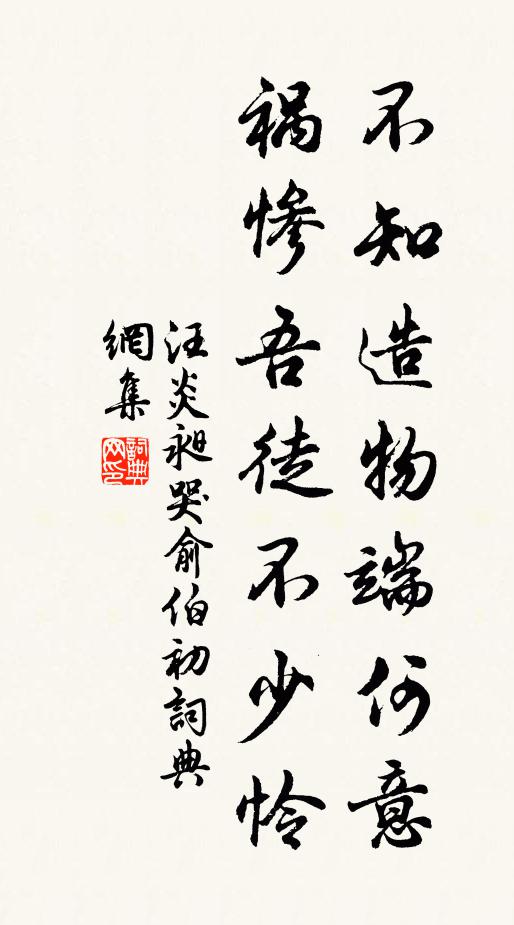 不知造物端何意
禍慘吾徒不少怜
汪炎昶哭俞伯初詞典
網集
詞典
网印